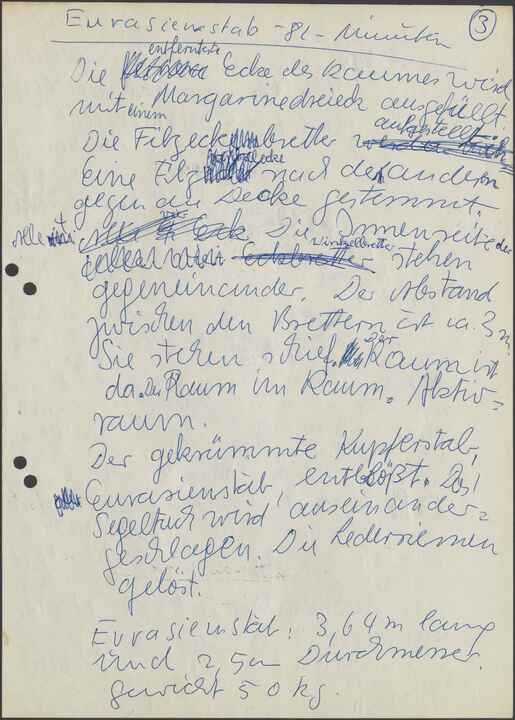 Eurasienstab - 82 - Minuten
3
entfernteste
Die Ecke des Raumes wird
mit einem Margarinedreieck ausgefüllt.
Die Filzeckenbretter aufgestellt.
Eine Filzecke nach der andern
gegen die Decke gestemmt.
Alle 4 Die Innenseite der
winkelbretter stehen
gegeneinander. Der Abstand
zwischen den Brettern ist ca. 3 m.
Sie stehen schief. Der Raum ist
da. Der Raum im Raum. Aktiv=
raum.
Der gekrümmte Kupferstab,
Eurasienstab, entblößt. Das
Segeltuch wird auseinander=
geschlagen. Die Lederriemen
gelöst.
Eurasienstab: 3,64 m lang
und 2,5 cm Durchmesser.
gewicht 50 kg.